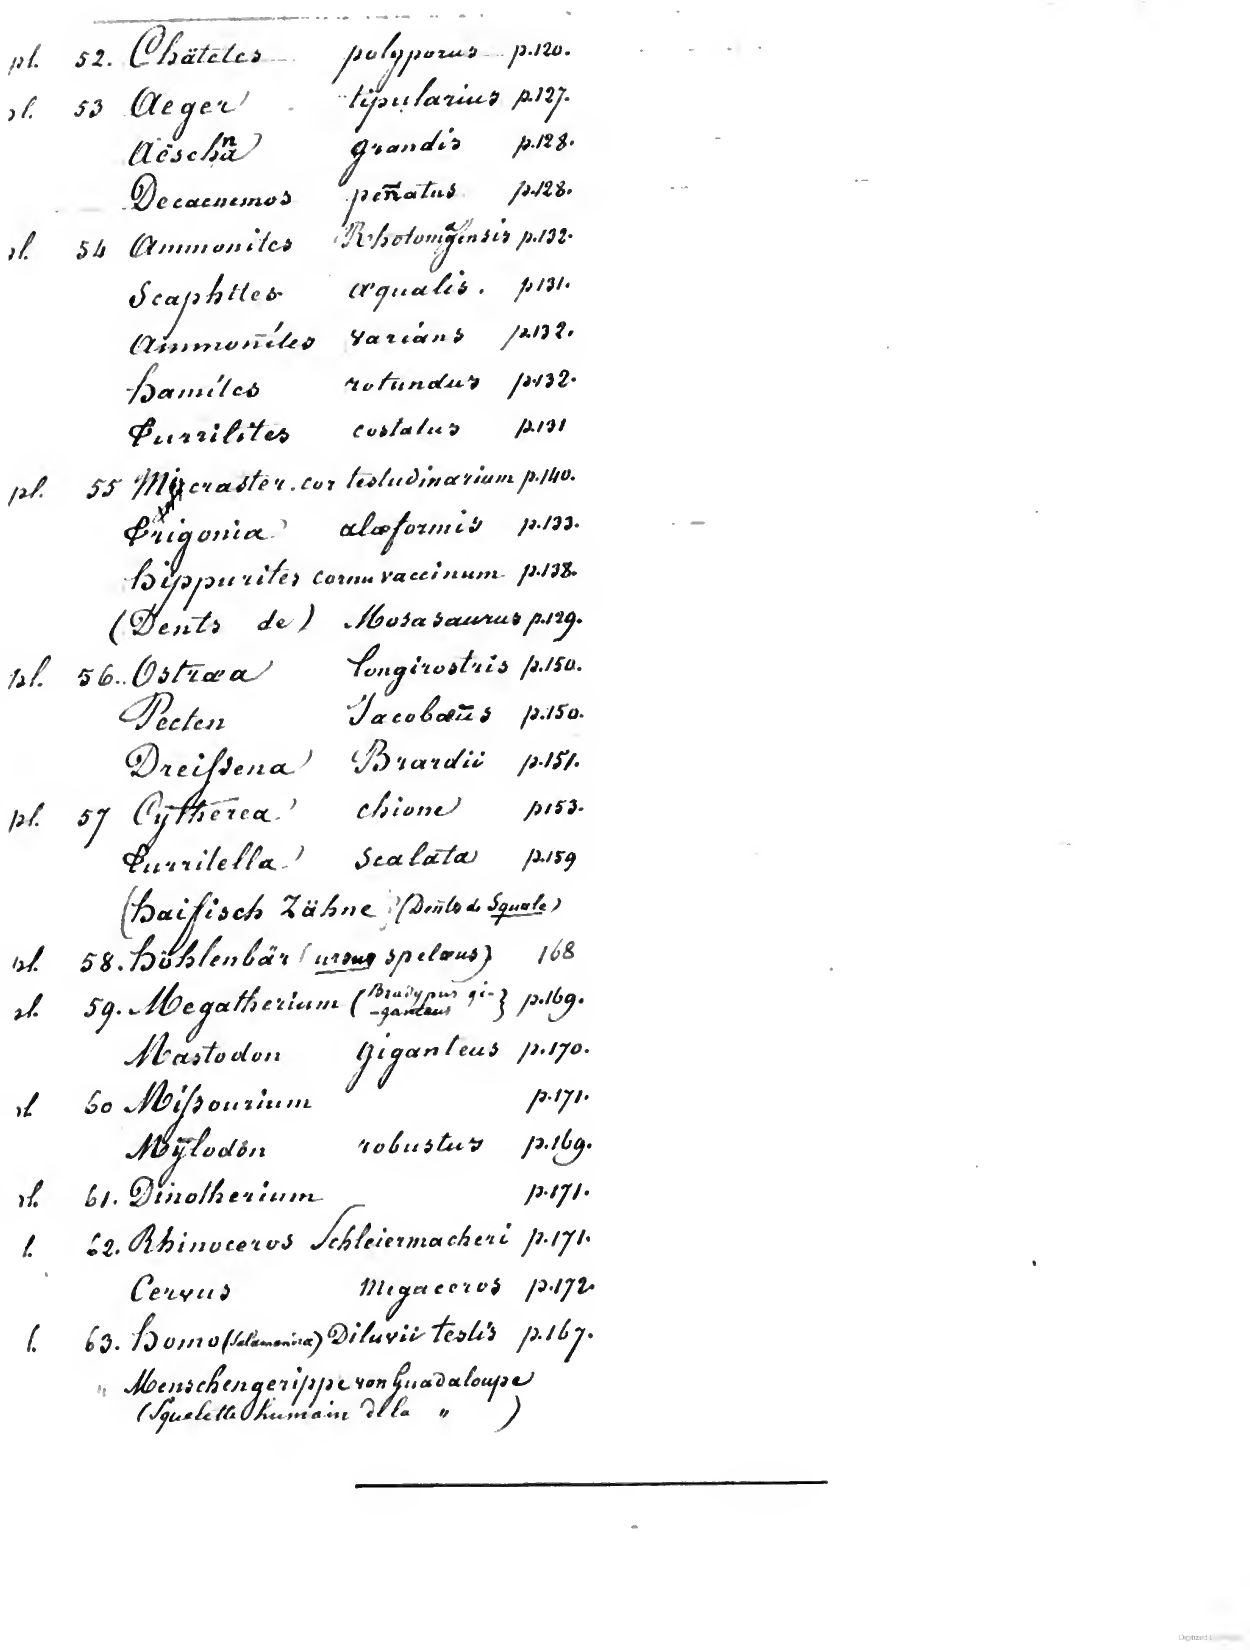 pl. 52. Chätetes polyporus p.120.
pl. 53 Aeger tipularius p.127.
Aëschna grandis p.128.
Decacnemos pen̄atus p.128.
pl. 54 Ammonites Rhotomagensis p.132.
Scaphites æqualis. p.131.
Ammonites varians p.132.
Hamites rotundus p.132.
Turrilites costatus p.131
pl. 55 Micraster. cor testudinarium p.140.
Trigonia alæformis p.133.
Hippurites cornu vaccinum p.138.
(Dents de) Mosasaurus p.129.
pl. 56. Ostræa longirostris p.150.
Pecten Jacobæus p.150.
Dreiſsena Brardii p.151.
pl. 57 Cytherea chione p153.
Turritella scalata p.159
(Haifisch Zähne (Dents de Squale)
pl. 58. Höhlenbär (ursus spelæus) 168
pl. 59. Megatherium (Bradypus gi-
-ganteus) p.169.
Mastodon giganteus p.170.
pl 60 Miſsourium p.171.
Mylodon robustus p.169.
pl. 61. Dinotherium p.171.
l. 62. Rhinoceros Schleiermacheri p.171.
Cervus megaceros p.172.
l. 63. Homo (Salamandra) Diluvii testis p.167.
" Menschengerippe von Guadaloupe
(Squelette humain de la " )
Digitized